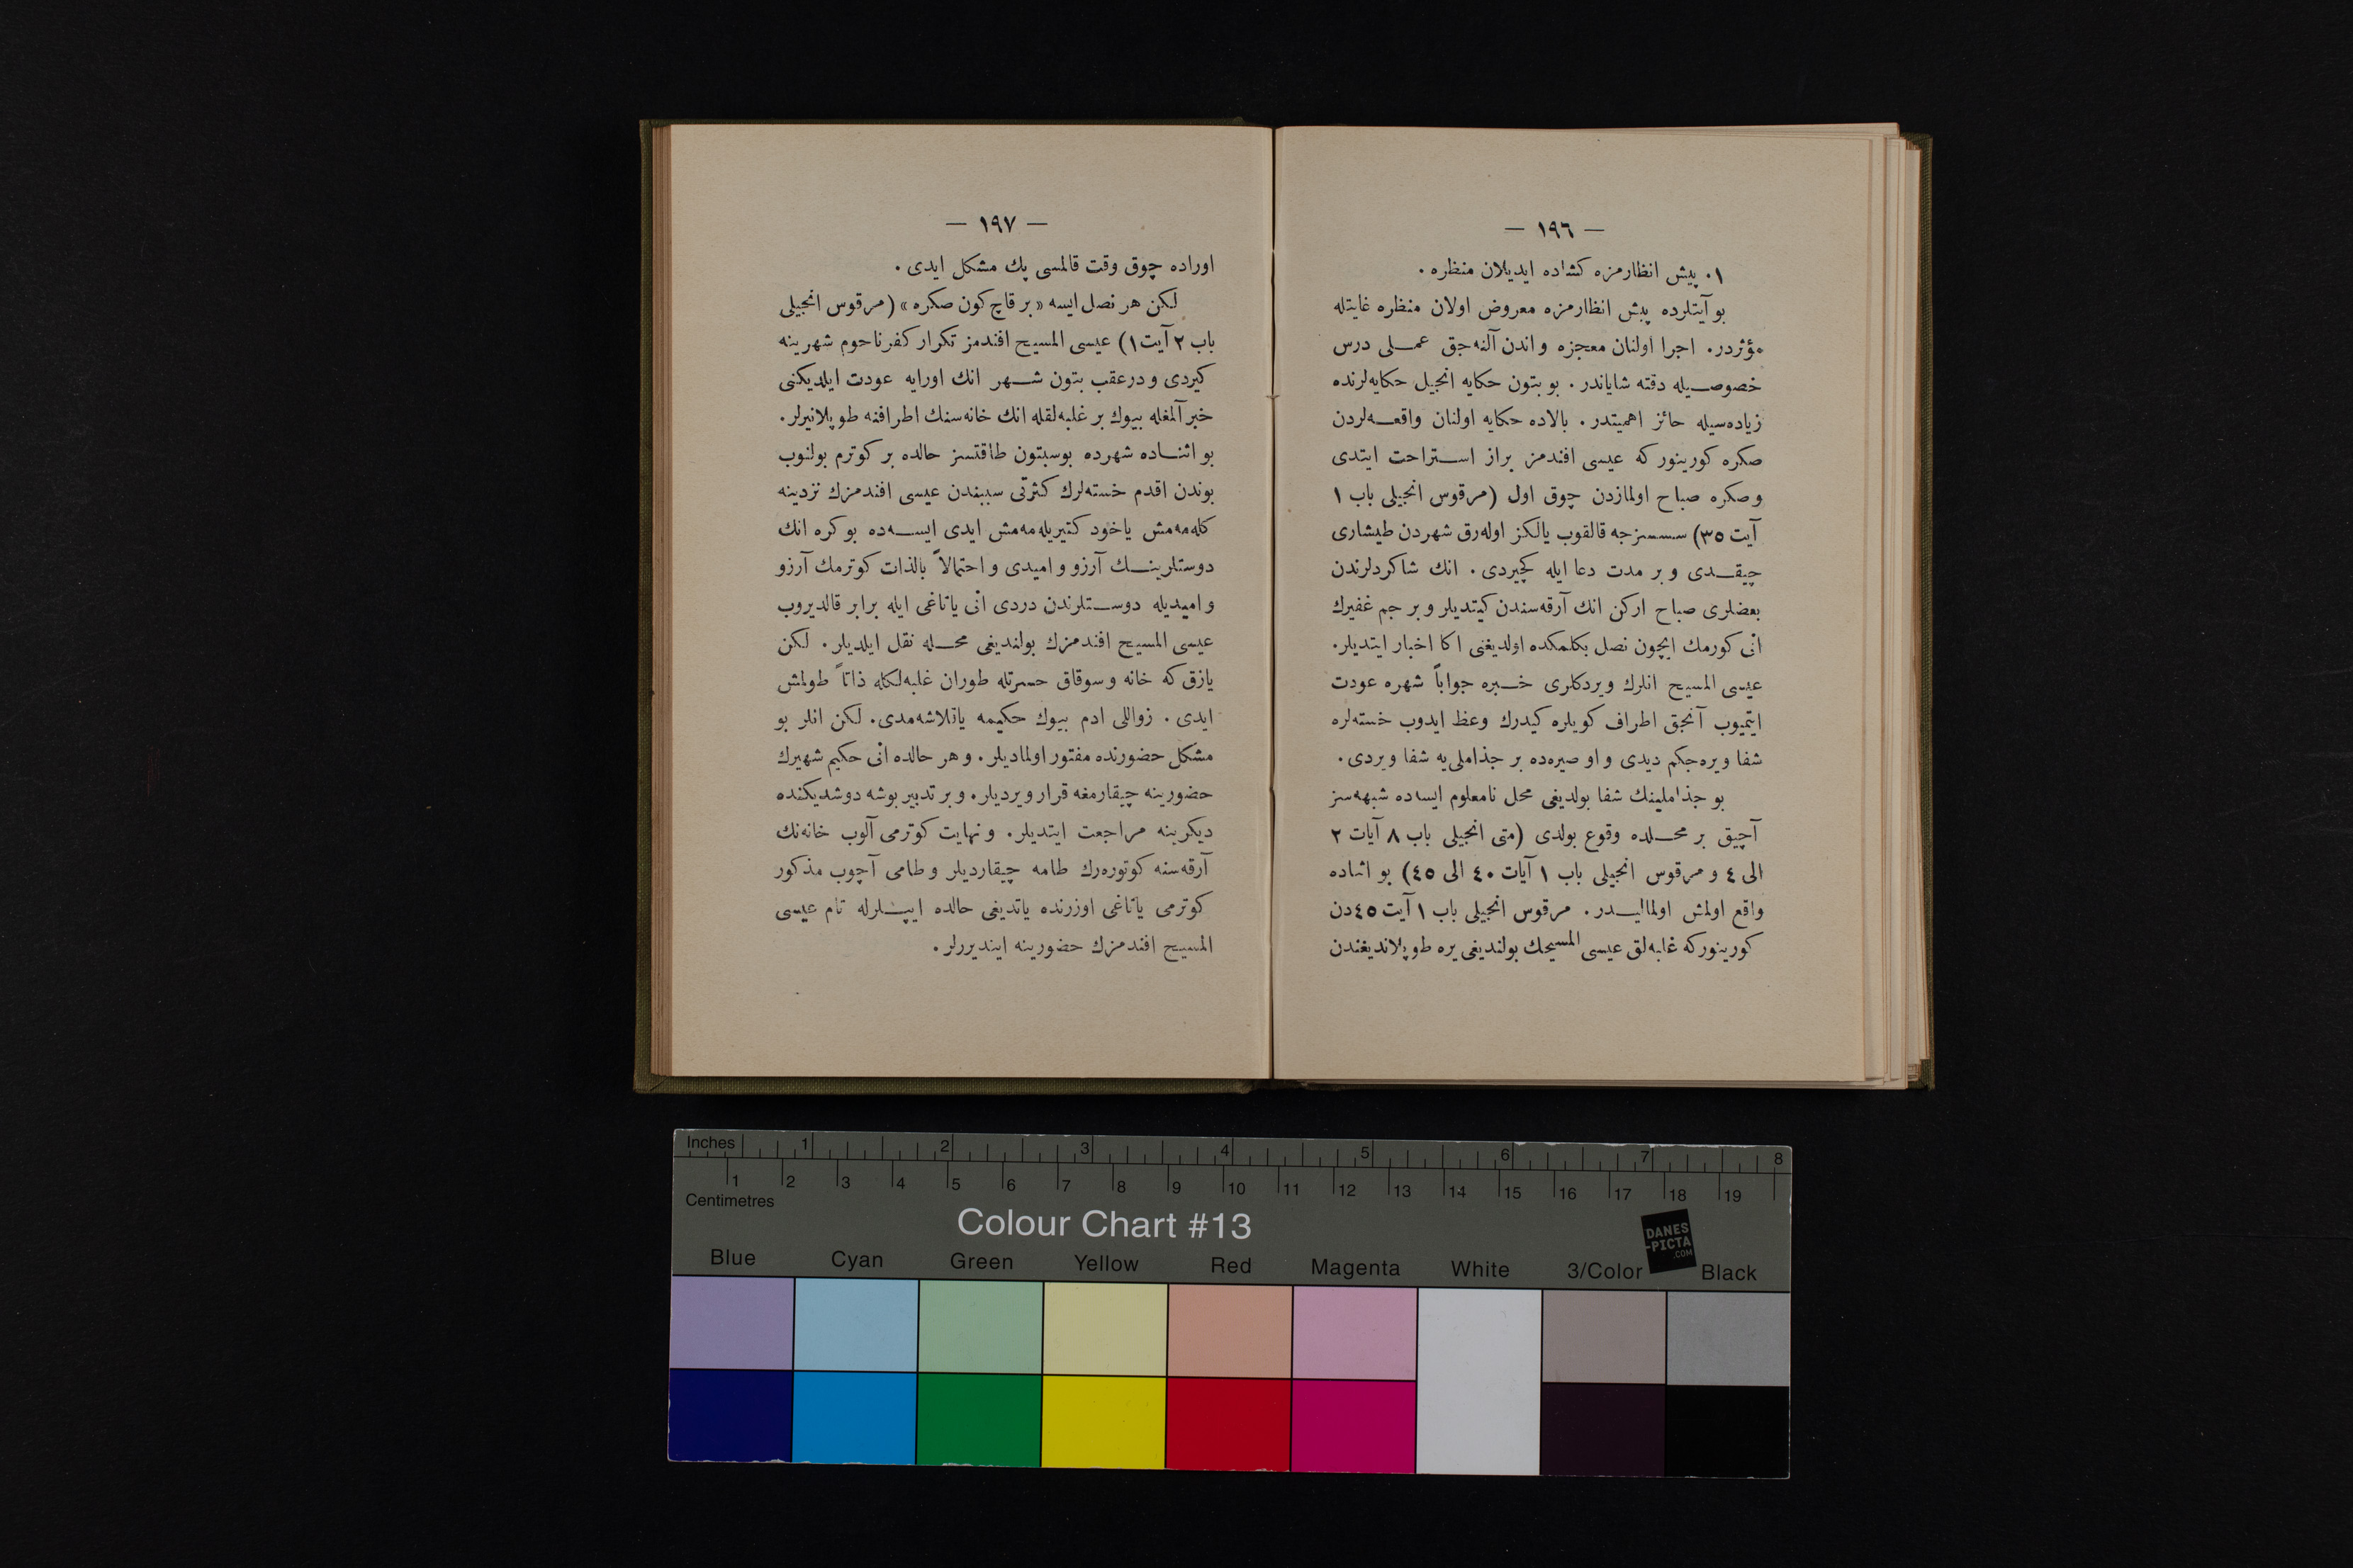 — ١٩٦ —
١٠ پيش انظارمزه كشاده ايديلان منظره ٠
بو آيتلرده پيش انظارمزه معروض اولان منظره غايتله
مؤثردر. اجرا اولنان معجزه و اندن آلنه‌جق عمــلى درس
خصوصــيله دقته شاياندر . بو بتون حكايه انجيل حكايه‌لرنده
زياده‌سيله حائز اهميتدر . بالاده حكايه اولنان واقعــه‌لردن
صكره كورينور كه عيسى افندمز براز اســتراحت ايتدى
و صكره صباح اولمازدن چوق اول (مرقوس انجيلى باب ١
آيت ٣٥) سسسزجه قالقوب يالكز اوله‌رق شهردن طيشارى
چيقــدى و بر مدت دعا ايله كچيردى . انك شاكردلرندن
بعضلرى صباح اركن انك آرقه‌سندن كيتديلر و بر جم غفيرك
انى كورمك ايچون نصل بكلمكده اولديغنى اكا اخبار ايتديلر.
عيسى المسيح انلرك ويردكلرى خــبره جواباً شهره عودت
ايتميوب آنجق اطراف كويلره كيدرك وعظ ايدوب خسته‌لره
شفا ويره‌جكم ديدى و او صيره‌ده بر جذاملى‌يه شفا ويردى .
بو جذاملينك شفا بولديغى محل نامعلوم ايسه‌ده شبهه‌سز
آچيق بر محــلده وقوع بولدى (متى انجيلى باب ٨ آيات ٢
الى ٤ و مرقوس انجيلى باب ١ آيات ٤٠ الى ٤٥) بو اثناده
واقع اولمش اولماليــدر . مرقوس انجيلى باب ١ آيت ٤٥ دن
كورينوركه غلبه‌لق عيسى المسيحك بولنديغى يره طوپلانديغندن
— ١٩٧ —
اوراده چوق وقت قالمسى پك مشكل ايدى .
لكن هر نصل ايسه «بر قاچ كون صكره» (مرقوس انجيلى
باب ٢ آيت ١) عيسى المسيح افندمز تكرار كفرناحوم شهرينه
كيردى و درعقب بتون شــهر انك اورايه عودت ايلديكنى
خبر آلمغله بيوك بر غلبه‌لقله انك خانه‌سنك اطرافنه طوپلانيرلر.
بو اثنــاده شهرده بوسبتون طاقتسز حالده بر كوترم بولنوب
بوندن اقدم خسته‌لرك كثرتى سببندن عيسى افندمزك نزدينه
كله‌مه‌مش ياخود كتيريله‌مه‌مش ايدى ايســه‌ده بو كره انك
دوستلرينــك آرزو و اميدى و احتمالاً بالذات كوترمك آرزو
و اميديله دوســتلرندن دردى انى ياتاغى ايله برابر قالديروب
عيسى المسيح افندمزك بولنديغى محــله نقل ايلديلر. لكن
يازق كه خانه و سوقاق حسرتله طوران غلبه‌لكله ذاتاً طولمش
ايدى . زواللى ادم بيوك حكيمه ياقلاشه‌مدى. لكن انلر بو
مشكل حضورنده مفتور اولماديلر. و هر حالده انى حكيم شهيرك
حضورينه چيقارمغه قرار ويرديلر. و بر تدبير بوشه دوشديكنده
ديكرينه مراجعت ايتديلر. و نهايت كوترمى آلوب خانه‌نك
آرقه‌سنه كوتوره‌رك طامه چيقارديلر و طامى آچوب مذكور
كوترمى ياتاغى اوزرنده ياتديغى حالده ايپــلرله تام عيسى
المسيح افندمزك حضورينه اينديررلر.
Inches 1 2 3 4 5 6 7 8
1 2 3 4 5 6 7 8 9 10 11 12 13 14 15 16 17 18 19
Centimetres
Colour Chart #13
DANES
-PICTA
.COM
Blue Cyan Green Yellow Red Magenta White 3/Color Black